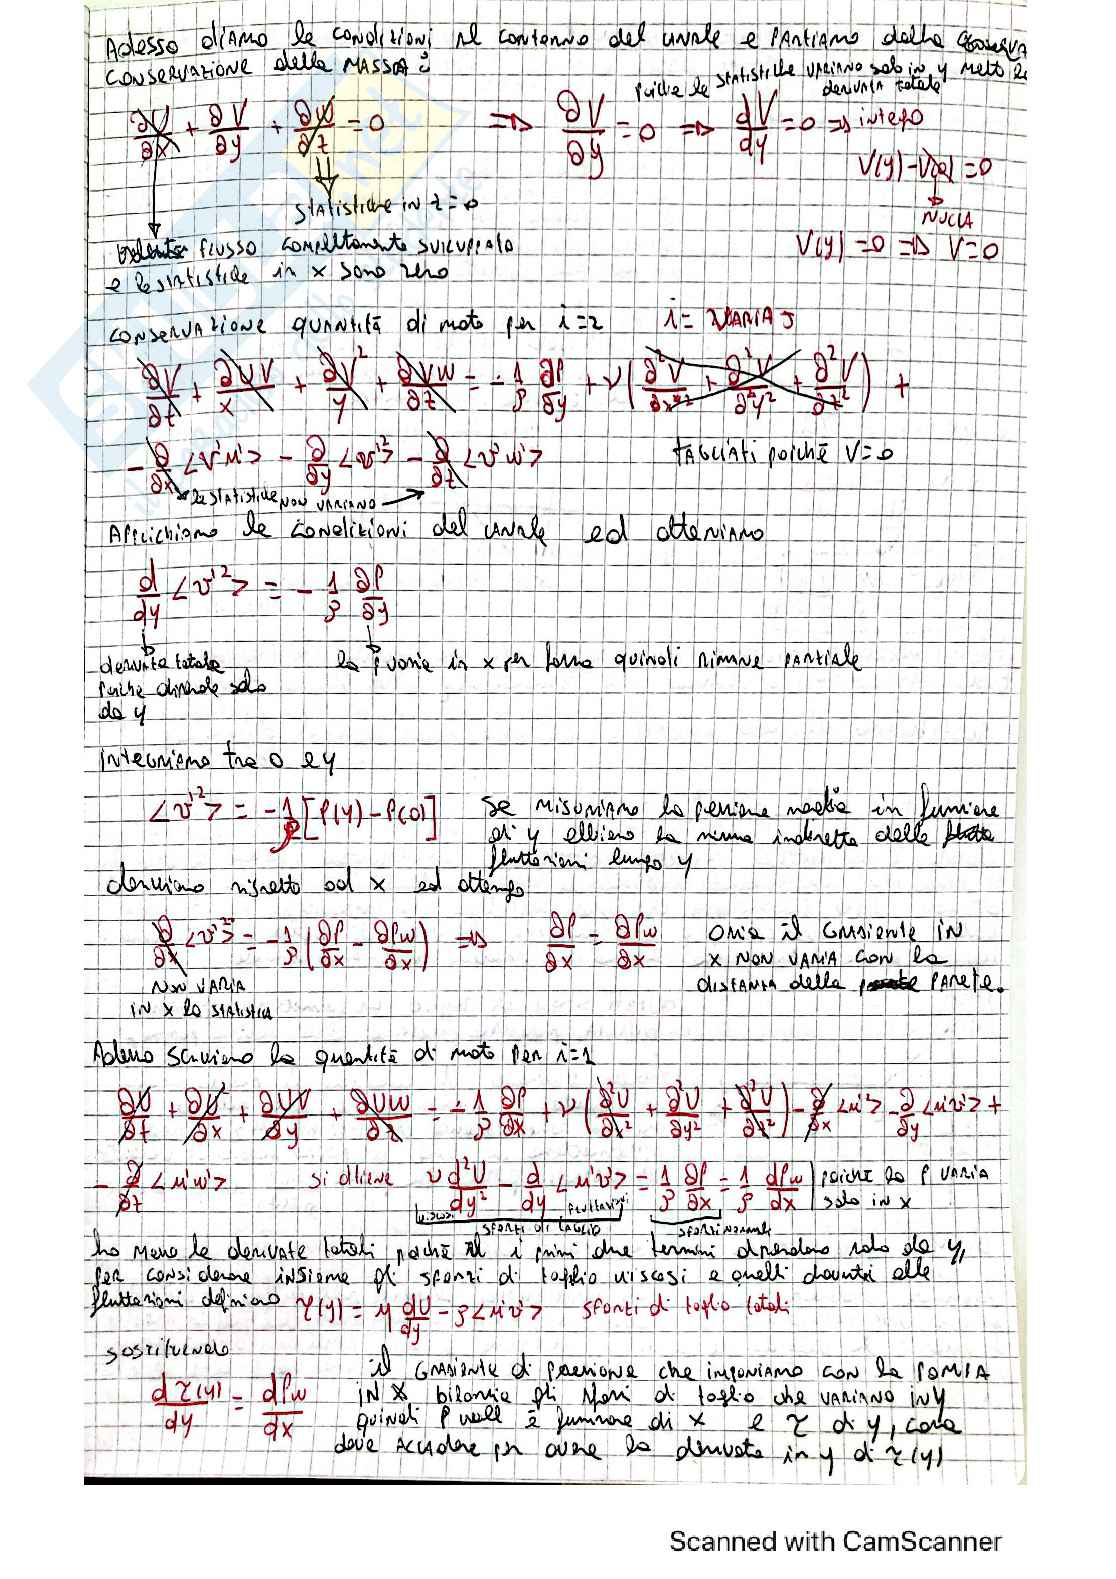 Adesso diamo le condizioni al contorno del canale e partiamo dalla
conservazione della massa:
poiché le statistiche variano solo in y metto la
derivata totale
∂U/∂x + ∂V/∂y + ∂W/∂z = 0 => ∂V/∂y = 0 => dV/dy = 0 => integro
V(y) - V(0) = 0
statistiche in z = 0
nulla
flusso completamente sviluppato V(y) = 0 => V = 0
e le statistiche in x sono zero
conservazione quantità di moto per i=2 i= varia J
∂V/∂t + ∂UV/x + ∂V²/y + ∂VW/∂z = -1/ρ ∂P/∂y + ν(∂²V/∂x² + ∂²V/∂²y² + ∂²V/∂z²) +
- ∂/∂x <v'u'> - ∂/∂y <v'²> - ∂/∂z <v'w'> tagliati poiché V=0
le statistiche non variano
Applichiamo le condizioni del canale ed otteniamo
d/dy <v'²> = - 1/ρ ∂P/∂y
derivata totale la P varia in x per forza quindi rimane parziale
poiché dipende solo
da y
Integriamo tra 0 e y
<v'²> = -1/ρ [P(y) - P(0)] se misuriamo la pressione media in funzione
di y abbiamo la misura indiretta delle
fluttuazioni lungo y
deriviamo rispetto ad x ed ottengo
∂/∂x <v'²> = -1/ρ (∂P/∂x - ∂Pw/∂x) => ∂P/∂x = ∂Pw/∂x ossia il gradiente in
x non varia con la
non varia distanza della parete.
in x la statistica
Adesso scriviamo la quantità di moto per i=1
∂U/∂t + ∂U²/∂x + ∂UV/∂y + ∂UW/∂z = -1/ρ ∂P/∂x + ν(∂²U/∂x² + ∂²U/∂y² + ∂²U/∂z²) - ∂/∂x <u'²> - ∂/∂y <u'v'> +
- ∂/∂z <u'w'> si ottiene ν d²U/dy² - d/dy <u'v'> = 1/ρ ∂P/∂x = 1/ρ dPw/dx poiché la P varia
solo in x
viscosi fluttuazioni
sforzi di taglio sforzi normali
ho messo le derivate totali poiché i primi due termini dipendono solo da y,
per considerare insieme gli sforzi di taglio viscosi e quelli dovuti alle
fluttuazioni definiamo τ(y) = μ dU/dy - ρ<u'v'> sforzi di taglio totali
sostituendo
il gradiente di pressione che imponiamo con la pompa
dτ(y)/dy = dPw/dx in x bilancia gli sforzi di taglio che variano in y
quindi P wall è funzione di x e τ di y, cosa
deve accadere per avere la derivata in y di τ(y)
Scanned with CamScanner